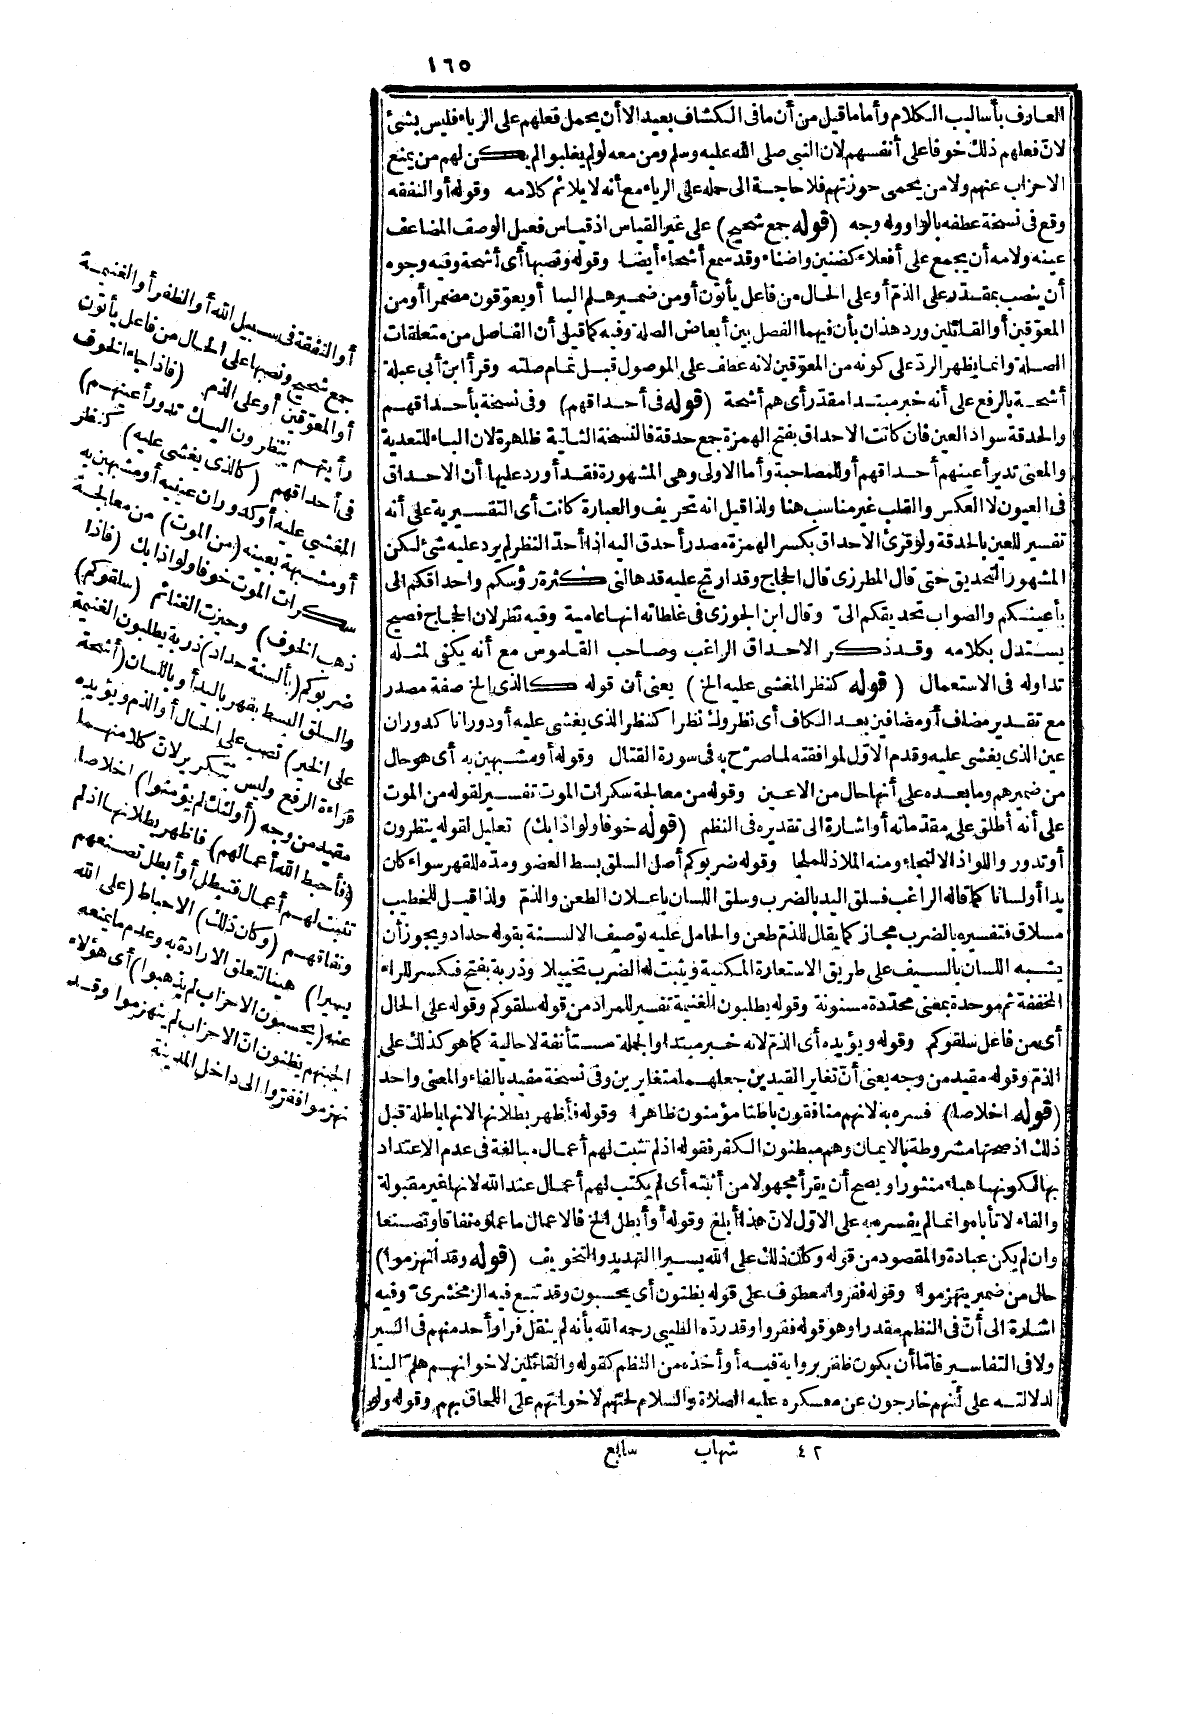 ١٦٥
العارف بأساليب الكلام وأما ما قيل من أن ما فى الكشاف بعيد الا أن يحمل فعلهم على الرياء فليس بشئ
لان فعلهم ذلك خوفا على أنفسهم لان النبي صلى الله عليه وسلم ومن معه لو لم يغلبوا لم يكن لهم من يمنع
الاحزاب عنهم ولا من يحمى حوزتهم فلا حاجة الى حمله على الرياء مع أنه لا يلائم كلامه وقوله أو النفقه
وقع فى نسخة عطفه بالواو وله وجه (قوله جمع شحيح) على غير القياس اذ قياس فعيل الوصف المضاعف
عينه ولامه أن يجمع على أفعلاء كضنين واضناء وقد سمع أشحاء أيضا وقوله ونصبها أى أشحة وفيه وجوه
أن ينصب بمقدر على الذم أو على الحال من فاعل يأتون أو من ضمير هلم الينا أو يعوقون مضمرا أو من
المعوقين أو القائلين ورد هذان بأن فيهما الفصل بين أبعاض الصله وفيه كما قيل أن الفاصل من متعلقات
الصله وانما يظهر الرد على كونه من المعوقين لانه عطف على الموصول قبل تمام صلته وقرأ ابن أبى عبلة
أشحة بالرفع على أنه خبر مبتدا مقدر أى هم أشحة (قوله فى أحداقهم) وفى نسخة بأحداقهم
والحدقة سواد العين فان كانت الاحداق بفتح الهمزة جمع حدقة فالنسخة الثانية ظاهرة لان الباء للتعدية
والمعنى تدير أعينهم أحداقهم أو للمصاحبة وأما الاولى وهى المشهورة فقد أورد عليها أن الاحداق
فى العيون لا العكس والقلب غير مناسب هنا ولذا قيل انه تحريف والعبارة كانت أى التفسيرية على أنه
تفسير للعين بالحدقة ولو قرئ الاحداق بكسر الهمزة مصدر أحدق اليه اذا أحد النظر لم يرد عليه شئ لكن
المشهور التحديق حتى قال المطرزى قال الحجاج وقد ارتج عليه قد هالنى كثرة رؤسكم واحداقكم الى
بأعينكم والصواب تحديقكم الى وقال ابن الجوزى فى غلطاته انها عامية وفيه نظر لان الحجاج فصيح
يستدل بكلامه وقد ذكر الاحداق الراغب وصاحب القاموس مع أنه يكفى لمثله
تداوله فى الاستعمال (قوله كنظر المغشى عليه الخ) يعنى أن قوله كالذى الخ صفة مصدر
مع تقدير مضاف أو مضافين بعد الكاف أى نظر ولك نظرا كنظر الذى يغشى عليه أو دورانا كدوران
عين الذى يغشى عليه وقدم الاول لموافقته لما صرح به فى سورة القتال وقوله أو مشبهين به أى هو حال
من ضميرهم وما بعده على أنها حال من الاعين وقوله من معالجة سكرات الموت تفسير لقوله من الموت
على أنه أطلق على مقدماته أو اشارة الى تقديره فى النظم (قوله خوفا ولواذا بك) تعليل لقوله ينظرون
أو تدور واللواذ الالتجاء ومنه الملاذ للملجا وقوله ضربوكم أصل السلق بسط العضو ومده للقهر سواء كان
يدا أو لسانا كما قاله الراغب فسلق اليد بالضرب وسلق اللسان باعلان الطعن والذم ولذا قيل للخطيب
مسلاق فتفسيره بالضرب مجاز كما يقال للذم طعن والحامل عليه توصيف الالسنة بقوله حداد ويجوز أن
يشبه اللسان بالسيف على طريق الاستعارة المكنية ويثبت له الضرب تخييلا وذربة بفتح فكسر للراء
المخففة ثم موحدة بمعنى محددة مسنونة وقوله يطلبون الغنيمة تفسير للمراد من قوله سلقوكم وقوله على الحال
أى من فاعل سلقوكم وقوله ويؤيده أى الذم لانه خبر مبتدا والجملة مستأنفة لا حالية كما هو كذلك على
الذم وقوله مقيد من وجه يعنى أن تغاير القيدين جعلهما متغايرين وفى نسخة مفيد بالفاء والمعنى واحد
(قوله اخلاصا) فسره به لانهم منافقون باطنا مؤمنون ظاهرا وقوله فأظهر بطلانها لانها باطلة قبل
ذلك اذ صحتها مشروطة بالايمان وهم مبطنون الكفر فقوله اذ لم تثبت لهم أعمال مبالغة فى عدم الاعتداد
بها لكونها هباء منثورا ويصح أن يقرأ مجهولا من أثبته أى لم يكتب لهم أعمال عند الله لانها غير مقبولة
والفاء لا تأباه وانما لم يفسر به على الاول لان هذا أبلغ وقوله أو أبطل الخ فالاعمال ما عملوه نفاقا وتصنعا
وان لم يكن عبادة والمقصود من قوله وكان ذلك على الله يسيرا التهديد والتخويف (قوله وقد انهزموا)
حال من ضمير ينهزموا وقوله ففروا معطوف على قوله يظنون أى يحسبون وقد تبع فيه الزمخشرى وفيه
اشارة الى أن فى النظم مقدرا وهو قوله ففروا وقد رده الطيبى رحمه الله بأنه لم ينقل فرار أحد منهم فى السير
ولا فى التفاسير فاما أن يكون ظفر برواية فيه أو أخذه من النظم كقوله والقائلين لاخوانهم هلم الينا
لدلالته على أنهم خارجون عن معسكره عليه الصلاة والسلام لحثهم لاخوانهم على اللحاق بهم وقوله ولو
أو النفقة فى سبيل الله أو الظفر أو الغنيمة
جمع شحيح ونصبها على الحال من فاعل يأتون
أو المعوقين أو على الذم (فاذا جاء الخوف
رأيتهم ينظرون اليك تدور أعينهم)
فى أحداقهم (كالذى يغشى عليه) كنظر
المغشى عليه أو كدوران عينيه أو مشبهين به
أو مشبهة بعينه (من الموت) من معالجة
سكرات الموت خوفا ولواذا بك (فاذا
ذهب الخوف) وحيزت الغنائم (سلقوكم)
ضربوكم (بألسنة حداد) ذربة يطلبون الغنيمة
والسلق البسط بقهر باليد أو باللسان (أشحة
على الخير) نصب على الحال أو الذم ويؤيده
قراءة الرفع وليس بتكرير لان كلا منهما
مقيد من وجه (أولئك لم يؤمنوا) اخلاصا
(فأحبط الله أعمالهم) فأظهر بطلانها اذ لم
تثبت لهم أعمال فتبطل أو أبطل تصنعهم
ونفاقهم (وكان ذلك) الاحباط (على الله
يسيرا) هينا لتعلق الارادة به وعدم ما يمنعه
عنه (يحسبون الاحزاب لم يذهبوا) أى هؤلاء
لجبنهم يظنون ان الاحزاب لم ينهزموا وقد
انهزموا ففروا الى داخل المدينة
٤٢ شهاب سابع